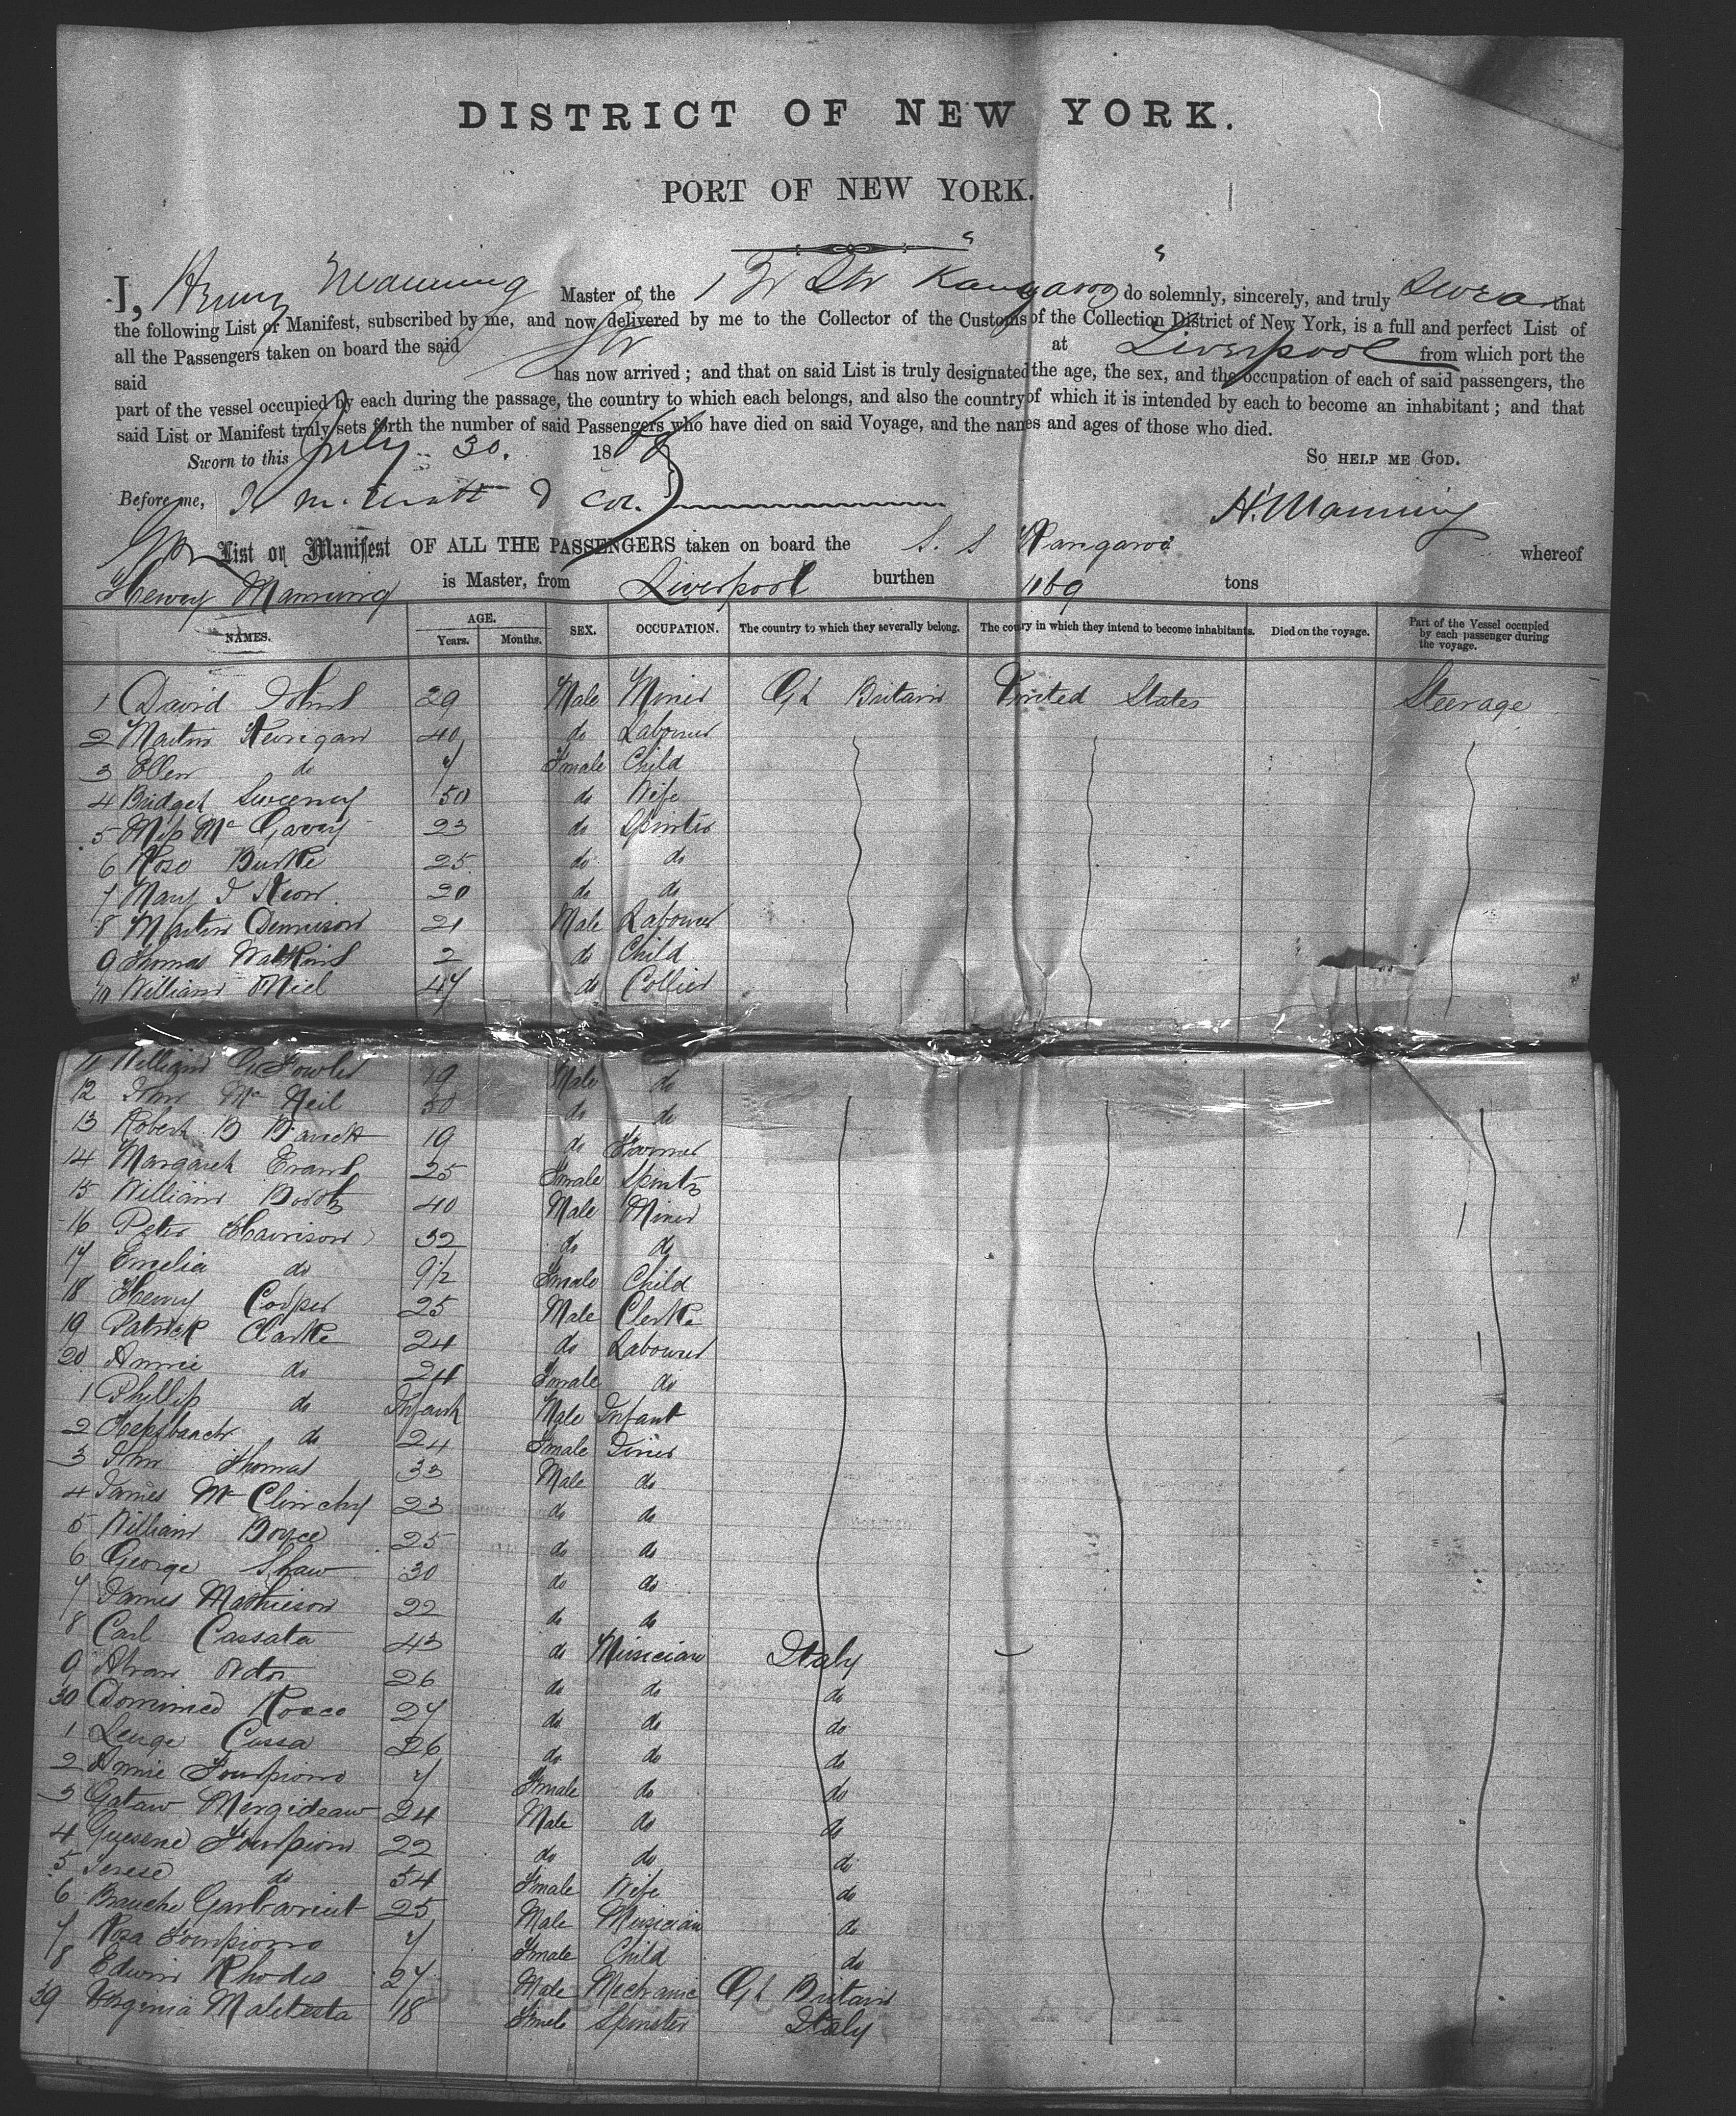 DISTRICT OF NEW YORK.
PORT OF NEW YORK.
I, Henry Manning Master of the Kangaroo do solemnly, sincerely, and truly Swear that
the following List or Manifest, subscribed by me, and now delivered by me to the Collector of the Customs of the Collection District of New York, is a full and perfect List of
all the Passengers taken on board the said Str at Liverpool from which port the
said has now arrived; and that on said List is truly designated the age, the sex, and the occupation of each of said passengers, the
part of the vessel occupied by each during the passage, the country to which each belongs, and also the country of which it is intended by each to become an inhabitant; and that
said List or Manifest truly sets forth the number of said Passengers who have died on said Voyage, and the names and ages of those who died.
Sworn to this July 30. 1868 SO HELP ME GOD.
Before me, Col. H. Manning
List or Manifest OF ALL THE PASSENGERS taken on board the S. S Kangaroo whereof
Henry Manning is Master, from Liverpool burthen 1169 tons
NAMES. AGE. Years. Months. SEX. OCCUPATION. The country to which they severally belong. The country in which they intend to become inhabitants. Died on the voyage. Part of the Vessel occupied by each passenger during the voyage.
1 David Johns 29 Male Miner Gt Britain United States Steerage
2 Martin Kerrigan 40 do Labourer
3 Ellen do 7 Female Child
4 Bridget Sweeney 50 do Wife
5 Miss Mc Gavey 23 do Spinster
6 Rose Burke 25 do do
7 Mary J Keon 20 do do
8 Martin Dennison 21 Male Labourer
9 Thomas Watkins 2 do Child
10 William Niel 47 do Collier
11 William Fowler 19 Male do
12 John Mc Neil 30 do do
13 Robert B Barrett 19 do Farmer
14 Margaret Evans 25 Female Spinstr
15 William Booth 40 Male Miner
16 Peter Harrison 32 do do
17 Emelia do 9½ Female Child
18 Henry Cooper 25 Male Clerke
19 Patrick Clarke 24 do Labourer
20 Annie do 24 Female do
1 Phillip do Infant Male Infant
2 do 24 Female
3 John Thomas 33 Male do
4 James Mc Clinchy 23 do do
5 William Boyce 25 do do
6 George Shaw 30 do do
7 James Mathieson 22 do do
8 Carl Cassata 43 do Musician Italy
9 26 do do do
30 Rocco 27 do do do
1 Cassa 26 do do do
2 Annie Fourpiono 7 Female do do
3 24 Male do do
4 22 do do do
5 Terese do 54 Female Wife do
6 25 Male Musician do
7 Rosa Fourpiono 7 Female Child do
8 Edwin Rhodes 27 Male Mechanic Gt Britain
39 Virginia Malatesta 18 Female Spinster Italy